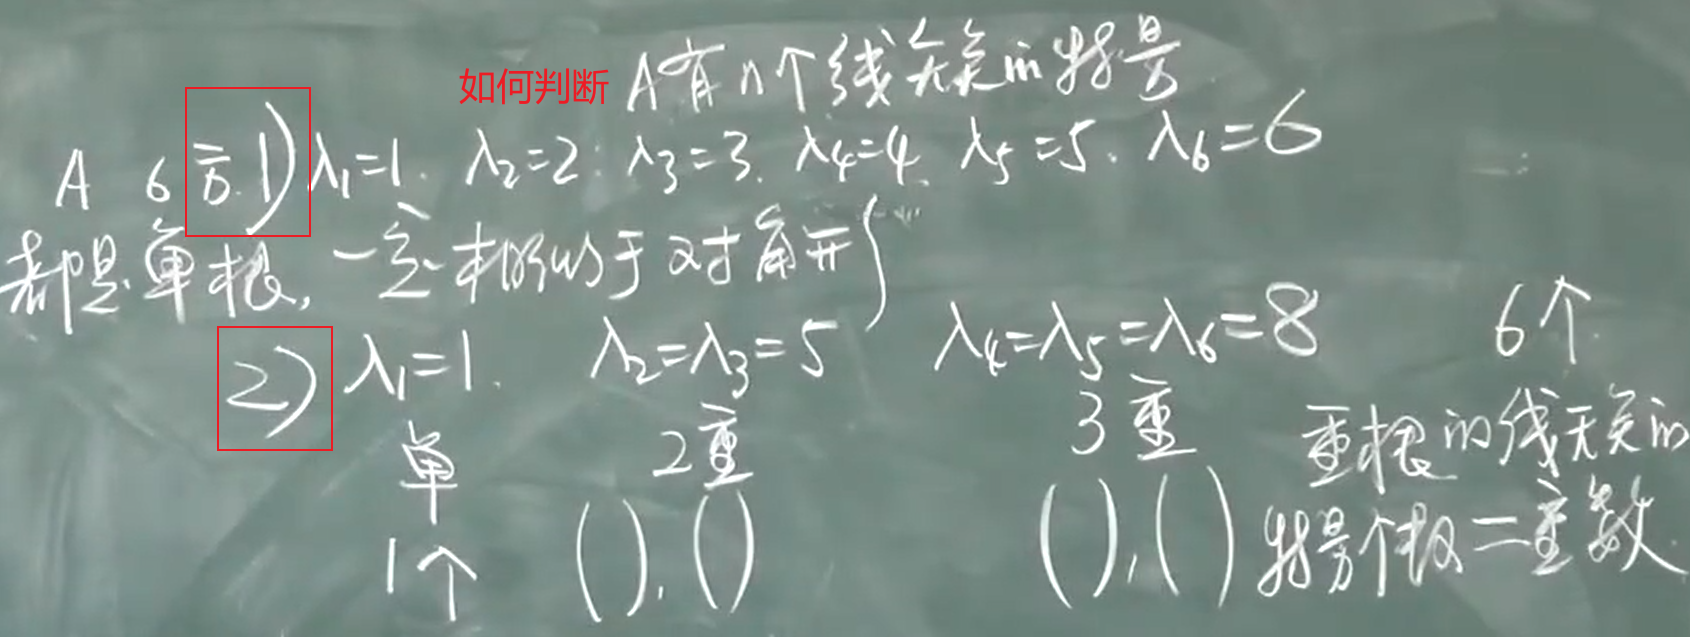 如何判断 A有n个线无关的特号
A 6方.1) λ₁=1. λ₂=2. λ₃=3. λ₄=4. λ₅=5. λ₆=6
都是单根,一定相似于对角形
2) λ₁=1. λ₂=λ₃=5 λ₄=λ₅=λ₆=8 6个
单 2重 3重 重根的线无关的
1个 ( ),( ) ( ),( ) 特号个数=重数